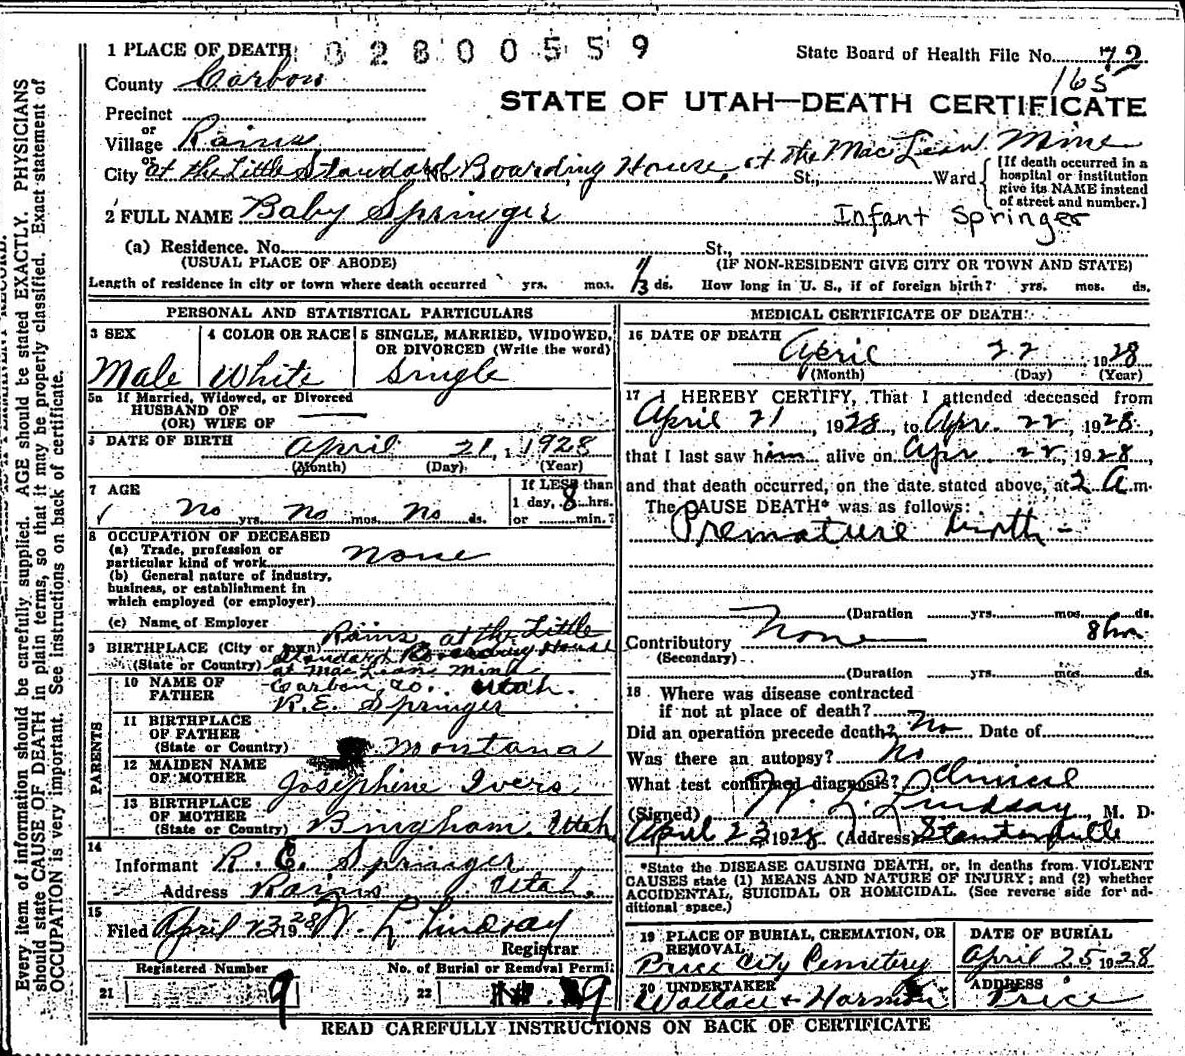 1 PLACE OF DEATH 02800559 State Board of Health File No. 72
County Carbon 165
STATE OF UTAH—DEATH CERTIFICATE
Precinct
or
Village Rains
or
City at the Little Standard Boarding House, at the MacLean Mine St., Ward
[If death occurred in a
hospital or institution
give its NAME instead
of street and number.]
2 FULL NAME Baby Springer Infant Springer
(a) Residence. No. St.,
(USUAL PLACE OF ABODE) (IF NON-RESIDENT GIVE CITY OR TOWN AND STATE)
Length of residence in city or town where death occurred yrs. mos. 1/3 ds. How long in U. S., if of foreign birth? yrs. mos. ds.
PERSONAL AND STATISTICAL PARTICULARS
3 SEX 4 COLOR OR RACE 5 SINGLE, MARRIED, WIDOWED,
OR DIVORCED (Write the word)
Male White Single
5a If Married, Widowed, or Divorced
HUSBAND OF
(OR) WIFE OF
6 DATE OF BIRTH April 21, 1928
(Month) (Day) (Year)
7 AGE If LESS than
1 day, 8 hrs.
No yrs. No mos. No ds. or min.?
8 OCCUPATION OF DECEASED
(a) Trade, profession or
particular kind of work None
(b) General nature of industry,
business, or establishment in
which employed (or employer)
(c) Name of Employer
9 BIRTHPLACE (City or town) Rains at the Little
Standard Boarding House
(State or Country) at MacLean Mine
Carbon Co. Utah.
10 NAME OF
FATHER R.E. Springer
11 BIRTHPLACE
OF FATHER
(State or Country) Montana
12 MAIDEN NAME
OF MOTHER Josephine Ivers
13 BIRTHPLACE
OF MOTHER
(State or Country) Bingham, Utah
PARENTS
14
Informant R. E. Springer
Address Rains Utah.
15
Filed April 23 1928 W. L. Lindsay
Registrar
Registered Number No. of Burial or Removal Permit
21 9 22 9
MEDICAL CERTIFICATE OF DEATH
16 DATE OF DEATH
April 22 1928
(Month) (Day) (Year)
17 I HEREBY CERTIFY, That I attended deceased from
April 21, 1928, to Apr. 22, 1928,
that I last saw him alive on Apr. 22, 1928,
and that death occurred, on the date stated above, at 2 A.m.
The CAUSE DEATH* was as follows:
Premature birth -
(Duration yrs. mos. ds.
Contributory None 8 hrs.
(Secondary)
(Duration yrs. mos. ds.
18 Where was disease contracted
if not at place of death?
Did an operation precede death? No Date of
Was there an autopsy? No
What test confirmed diagnosis? Clinical
(Signed) W. L. Lindsay, M. D.
April 23 1928 (Address) Standardville
*State the DISEASE CAUSING DEATH, or, in deaths from VIOLENT
CAUSES state (1) MEANS AND NATURE OF INJURY; and (2) whether
ACCIDENTAL, SUICIDAL OR HOMICIDAL. (See reverse side for ad-
ditional space.)
19 PLACE OF BURIAL, CREMATION, OR
REMOVAL
Price City Cemetery
DATE OF BURIAL
April 25 1928
20 UNDERTAKER
Wallace & Harmon
ADDRESS
Price
READ CAREFULLY INSTRUCTIONS ON BACK OF CERTIFICATE
Every item of information should be carefully supplied. AGE should be stated EXACTLY. PHYSICIANS
should state CAUSE OF DEATH in plain terms, so that it may be properly classified. Exact statement of
OCCUPATION is very important. See instructions on back of certificate.